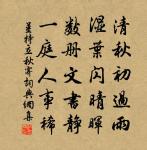 清秋初過雨
濕葉閃晴暉
數冊文書靜
一庭人事稀
姜特立秋詞典網集